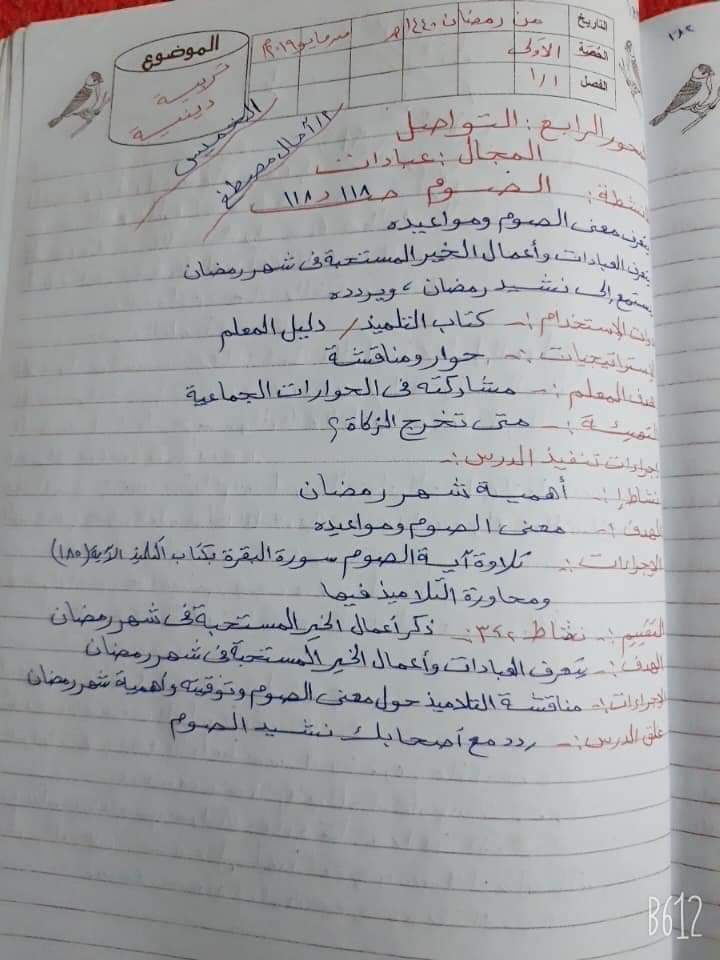 ١٨٢
التاريخ من رمضان ١٤٤٠ هـ من مايو ٢٠١٩م
الحصة الأولى
الفصل ١/١
الموضوع
تربية دينية
الخميس
١/ أمال مصطفى
محور الرابع : التواصل
المجال : عبادات
أنشطة : الصوم صـ ١١٨ د ١١٨
يتعرف معنى الصوم ومواعيده
يتعرف العبادات وأعمال الخير المستحبة فى شهر رمضان
يستمع إلى نشيد رمضان ، ويردده
دوات الاستخدام :- كتاب التلميذ / دليل المعلم
لاستراتيجيات :- حوار ومناقشة
هدف المعلم :- مشاركته فى الحوارات الجماعية
التهيئة :- متى تخرج الزكاة ؟
إجراءات تنفيذ الدرس :-
نشاط ١ :- أهمية شهر رمضان
الهدف :- معنى الصوم ومواعيده
الإجراءات :- تلاوة آية الصوم سورة البقرة بكتاب التلميذ الآية (١٨٥)
ومحاورة التلاميذ فيها
التقييم :- نشاط ٢، ٣ :- ذكر أعمال الخير المستحبة فى شهر رمضان
الهدف :- يتعرف العبادات وأعمال الخير المستحبة فى شهر رمضان
الإجراءات :- مناقشة التلاميذ حول معنى الصوم وتوقيته وأهمية شهر رمضان
غلق الدرس :- ردد مع أصحابك نشيد الصوم
B612